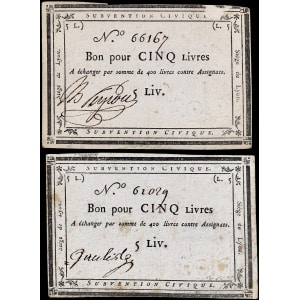 SUBVENTION CIVIQUE.
5 L.) (L. 5
N.º 66167
Siege de Lyon. Siege de Lyon.
Bon pour CINQ Livres
A échanger par somme de 400 livres contre Assignats.
5 Liv.
SUBVENTION CIVIQUE.
SUBVENTION CIVIQUE.
5 L.) (L. 5
N.º 61029
Siege de Lyon. Siege de Lyon.
Bon pour CINQ Livres
A échanger par somme de 400 livres contre Assignats.
5 Liv.
SUBVENTION CIVIQUE.